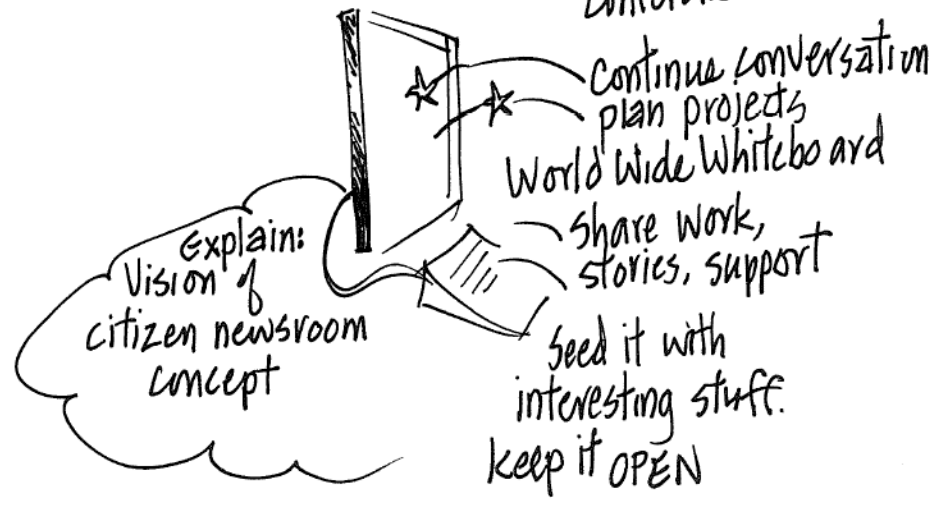 Continue conversation
plan projects
World Wide Whiteboard
Share work,
stories, support
Seed it with
interesting stuff.
keep it OPEN
Explain:
Vision of
citizen newsroom
concept